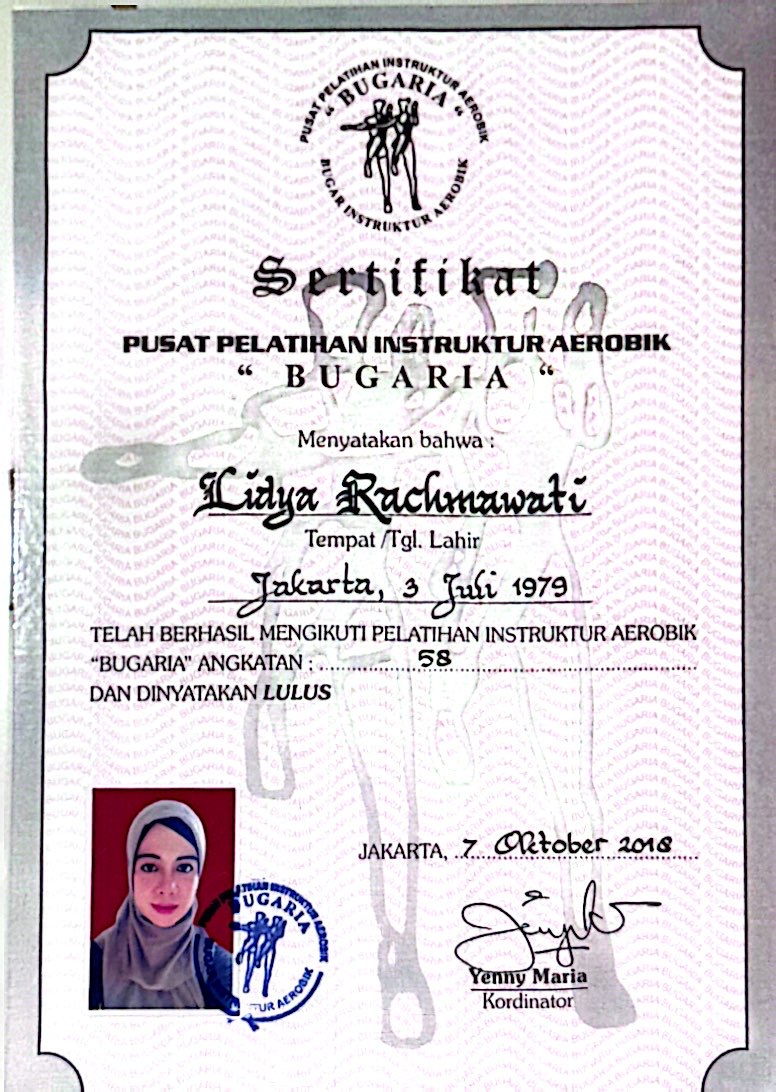 PUSAT PELATIHAN INSTRUKTUR AEROBIK
" BUGARIA "
BUGAR INSTRUKTUR AEROBIK
Sertifikat
PUSAT PELATIHAN INSTRUKTUR AEROBIK
" BUGARIA "
Menyatakan bahwa :
Lidya Rachmawati
Tempat /Tgl. Lahir
Jakarta, 3 Juli 1979
TELAH BERHASIL MENGIKUTI PELATIHAN INSTRUKTUR AEROBIK
"BUGARIA" ANGKATAN : 58
DAN DINYATAKAN LULUS
JAKARTA, 7 Oktober 2018
BUGARIA
Yenny Maria
Kordinator